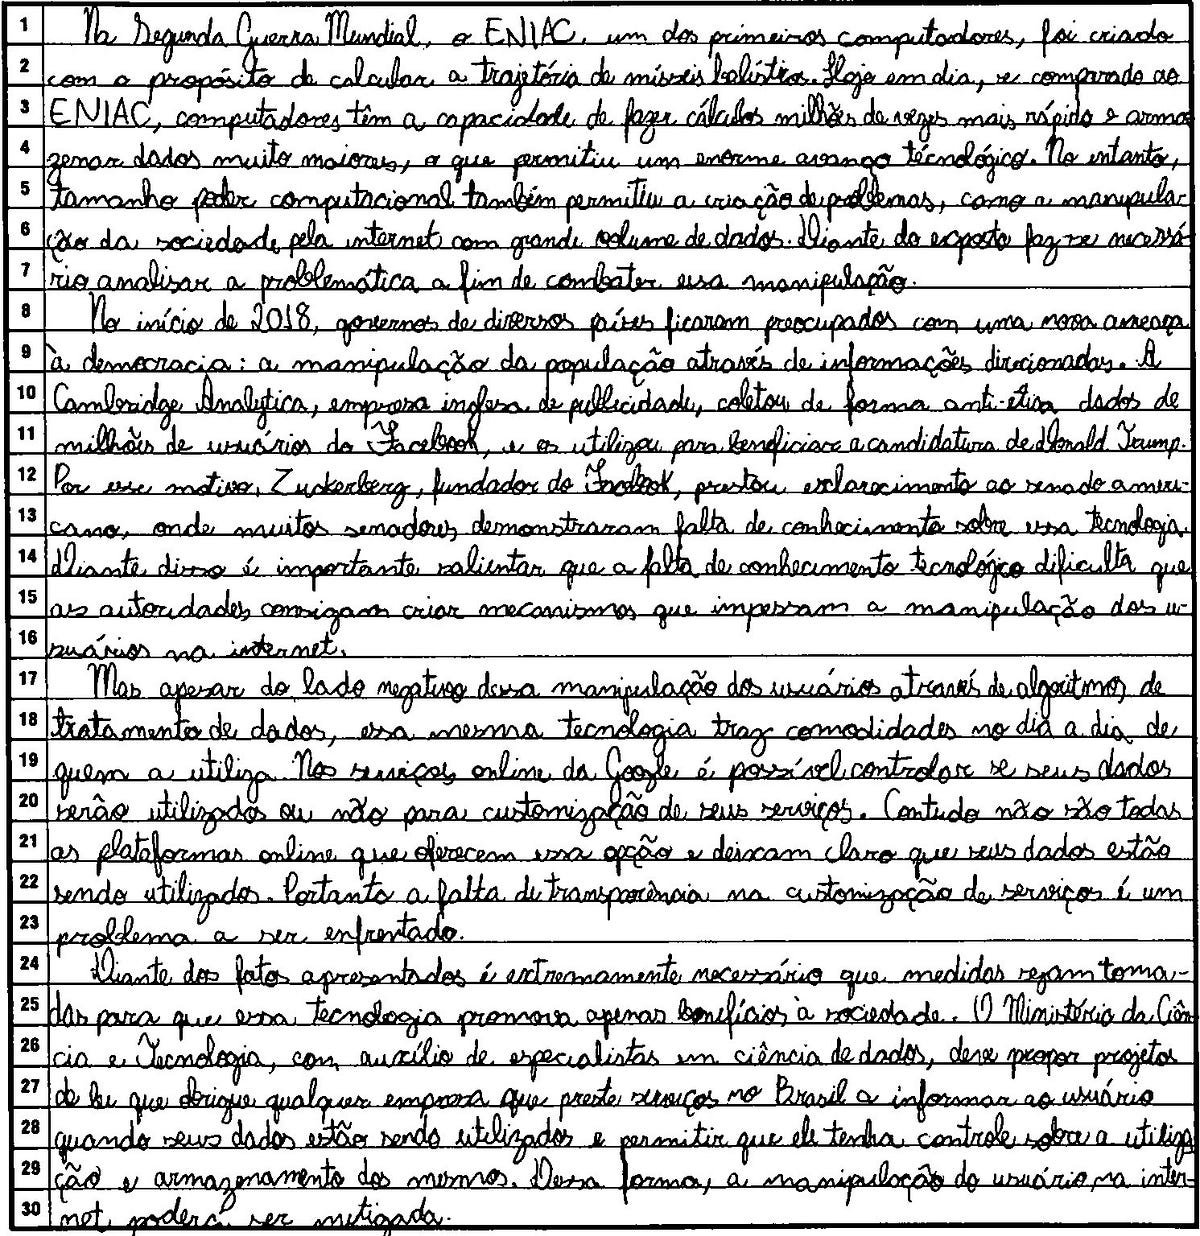 1 Na Segunda Guerra Mundial, o ENIAC, um dos primeiros computadores, foi criado
2 com o propósito de calcular a trajetória de mísseis balísticos. Hoje em dia, se comparado ao
3 ENIAC, computadores têm a capacidade de fazer cálculos milhões de vezes mais rápido e arma
4 zenar dados muito maiores, o que permitiu um enorme avanço técnológico. No entanto,
5 tamanho poder computacional também permitiu a criação de problemas, como a manipula-
6 ção da sociedade pela internet com grande volume de dados. Diante do exposto faz-se necessá-
7 rio analisar a problemática a fim de combater essa manipulação.
8 No início de 2018, governos de diversos países ficaram preocupados com uma nova ameaça
9 à democracia: a manipulação da população através de informações direcionadas. A
10 Cambridge Analytica, empresa inglesa de publicidade, coletou de forma anti-ética dados de
11 milhões de usuários do Facebook, e os utilizou para beneficiar a candidatura de Donald Trump.
12 Por esse motivo, Zuckerberg, fundador do Facebook, prestou esclarecimento ao senado ameri-
13 cano, onde muitos senadores demonstraram falta de conhecimento sobre essa tecnologia.
14 Diante disso é importante salientar que a falta de conhecimento tecnológico dificulta que
15 as autoridades consigam criar mecanismos que impessam a manipulação dos u-
16 suários na internet.
17 Mas apesar do lado negativo dessa manipulação dos usuários através de algoritmos de
18 tratamento de dados, essa mesma tecnologia traz comodidades no dia a dia de
19 quem a utiliza. Nos serviços online da Google é possível controlar se seus dados
20 serão utilizados ou não para customização de seus serviços. Contudo não são todas
21 as plataformas online que oferecem essa opção e deixam claro que seus dados estão
22 sendo utilizados. Portanto a falta de transparência na customização de serviços é um
23 problema a ser enfrentado.
24 Diante dos fatos apresentados é extremamente necessário que medidas sejam toma-
25 das para que essa tecnologia promova apenas benefícios à sociedade. O Ministério da Ciên-
26 cia e Tecnologia, com auxílio de especialistas em ciência de dados, deve propor projetos
27 de lei que obrigue qualquer empresa que preste serviços no Brasil a informar ao usuário
28 quando seus dados estão sendo utilizados e permitir que ele tenha controle sobre a utiliza
29 ção e armazenamento dos mesmos. Dessa forma, a manipulação do usuário na inter-
30 net, poderá ser mitigada.